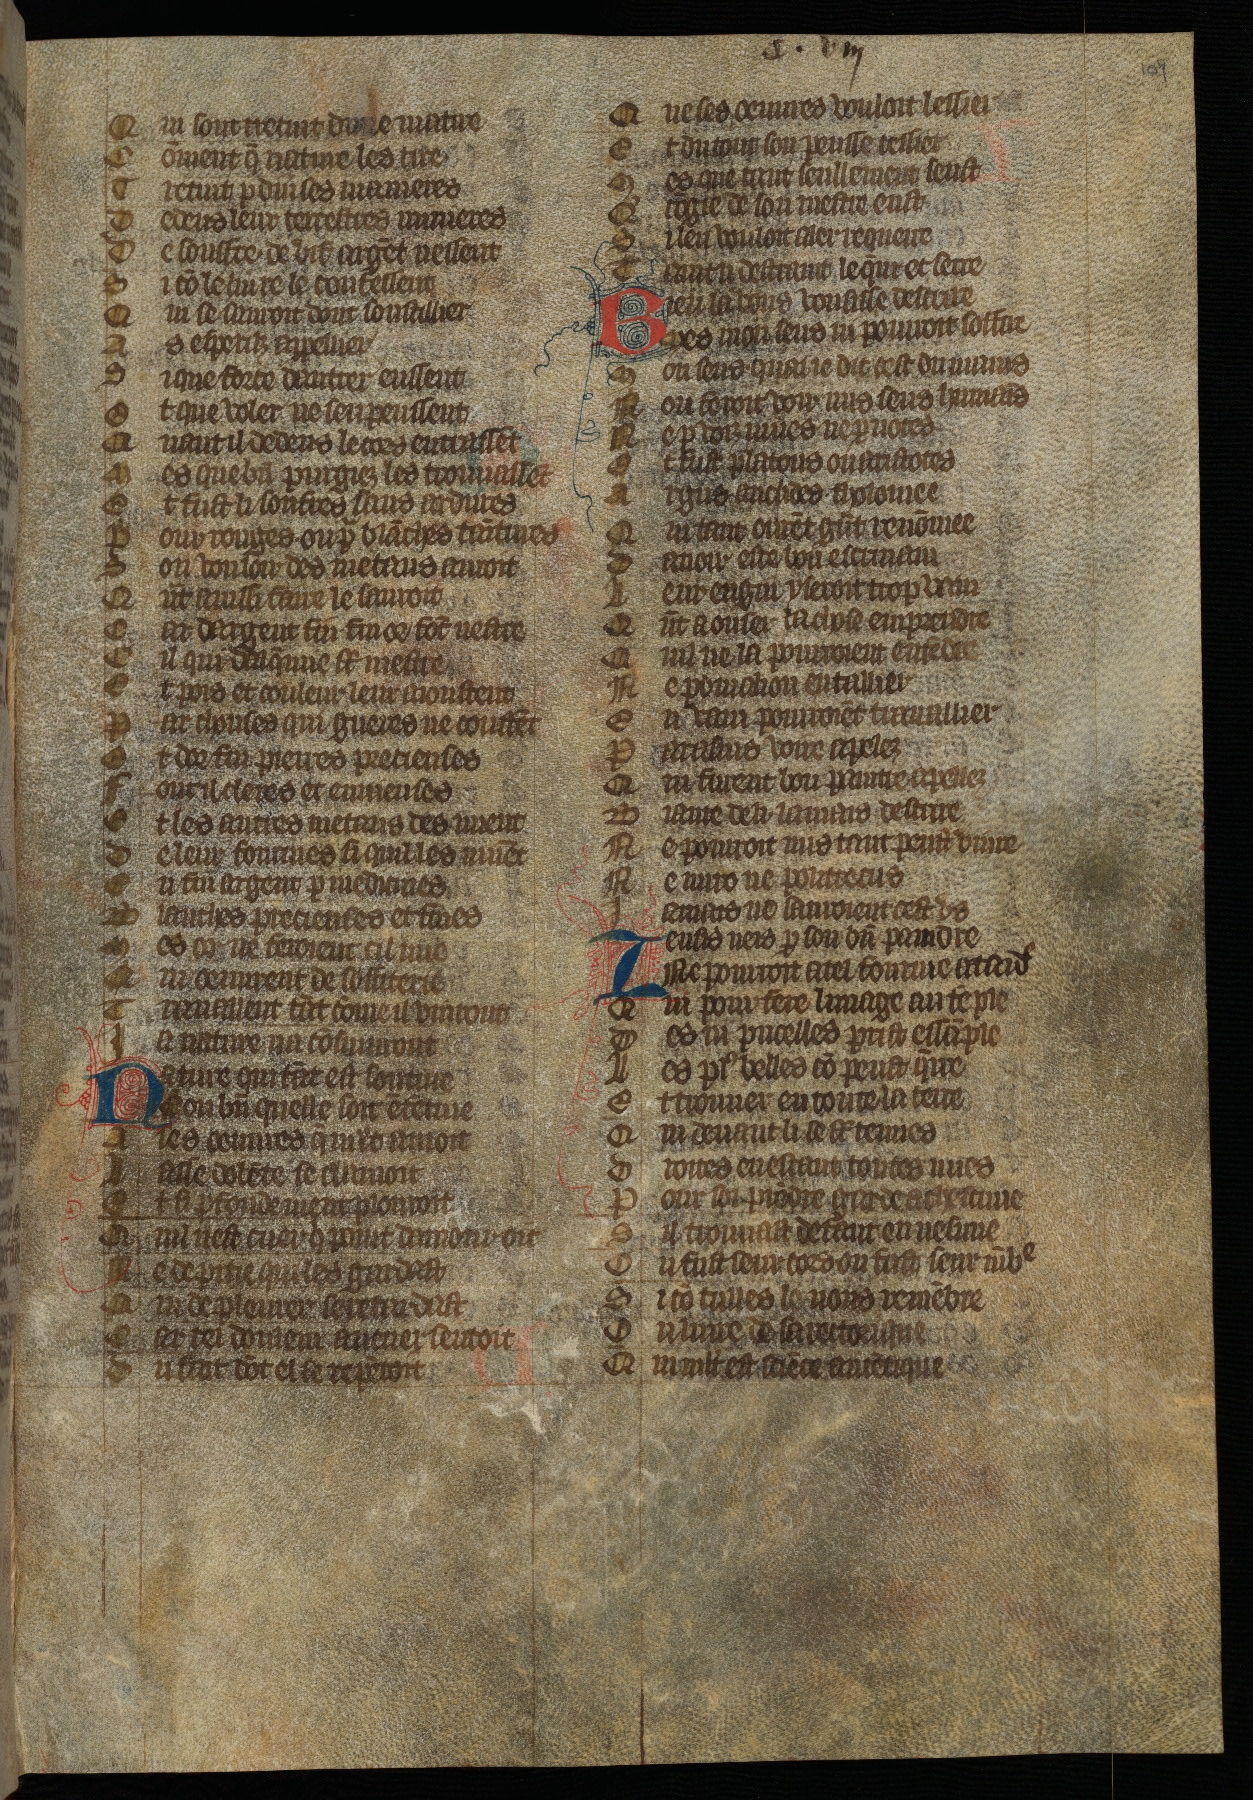 Q ui sont tretuit dune matire
C õment q̃ nature les tire
T retuit p diuises manieres
D edens leur terrestres minieres
D e souffre de uif argẽt nessent
S i cõ le liure le confessent
Q ui se sauroit dont soustillier
A s esperiz appellier
S i que force dentrer eussent
E t que voler ne sen peussent
Q uant il dedens le cors entrassẽt
M es que bñ purgiez les trouuassẽt
E t fust li souffres sans ardures
P our rouges ou p̃ blãches taĩtures
S on vouloir des metaus auroit
Q ñt ainsi faire le sauroit
C ar dargent fin fin or font nestre
C il qui dalq̃mie st mestre
E t pois et couleur leur aioustent
P ar choses qui gueres ne coustẽt
E t dor fin pierres precieuses
F ont il cleres et enuieuses
E t les autres metaus desnuent
D e leur formes si quil les muẽt
E n fin argent p medicines
B lanches precieuses et fines
M es ce ne feroient cil mie
Q ui oeuurent de soffisterie
T rauaillent tãt cõme il viuront
J a nature na cõsuiuront
N ature qui tãt est soutiue
C õ bñ quelle soit ẽtẽtiue
A ses oeuures q̃ mlt amoit
L asse dolẽte se clamoit
E t si p fondement plouroit
Q uil nest cuer q̃ point damour oit
N e de pitie qui les gardast
Q ui de plourer se retardast
C ar tel douleur au cuer sentoit
D u fait dõt el se repẽtoit
Q ue ses oeuures vouloit lessier
E t du tout son pensse cessier
M es que tant seullement seust
Q cõgie de son mestre eust
S i len vouloit aler requerre
T ant li destraint le q̃ur et serre
B ien la vous vousisse descrire
Mes mon sens ni pourroit soffire
M on sens quai ie dit cest du mains
N ou feroit voir nus sens humains
N e p vois viues ne p notes
E t fust platons ou aristotes
A rgus euclides tholomee
Q ui tant oiuẽt grãt renõmee
D auoir este bon escriuain
L eur engin y seroit trop vain
Q ñt a ouser la chose emprendre
Q uil ne la pourroient entẽdre
N e pimalion entaillier
E n vain pourroiẽt trauaillier
P arasius voire apeles
Q ui furent bon paintre apeller
B iaute de li iamais descrire
N e pourroit nus tant peust viure
N e miro ne policetus
J amais ne sauroient cest vs
Zeusis neis p son bñ paindre
Ne pourroit a tel fourme attaindre
Q ui pour fere limage au temple
D es in pucelles prist essãple
L es pl9 belles cõ peust q̃rre
E t trouuer en toute la terre
Q ui deuant li se st tenues
D roites en estant toutes nues
P our soi prẽdre garde a chascune
S il trouuast deffaut en nesune
O u fust seur cors ou fust seur mẽbre
S i cõ tulles le nous remẽbre
O u liure de sa rectorique
Q ui mlt est sciẽce autẽtique